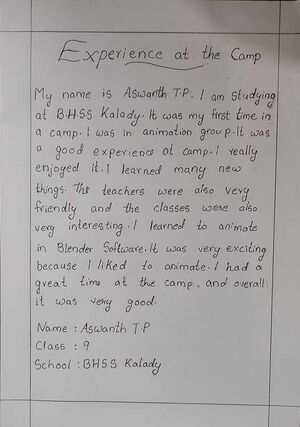 Experience at the Camp
My name is Aswanth T.P. I am studying
at B.H.S.S Kalady. It was my first time in
a camp. I was in animation group. It was
a good experience at camp. I really
enjoyed it. I learned many new
things. The teachers were also very
friendly and the classes were also
very interesting. I learned to animate
in Blender Software. It was very exciting
because I liked to animate. I had a
great time at the camp, and overall
it was very good.
Name : Aswanth T.P
Class : 9
School : BHSS Kalady